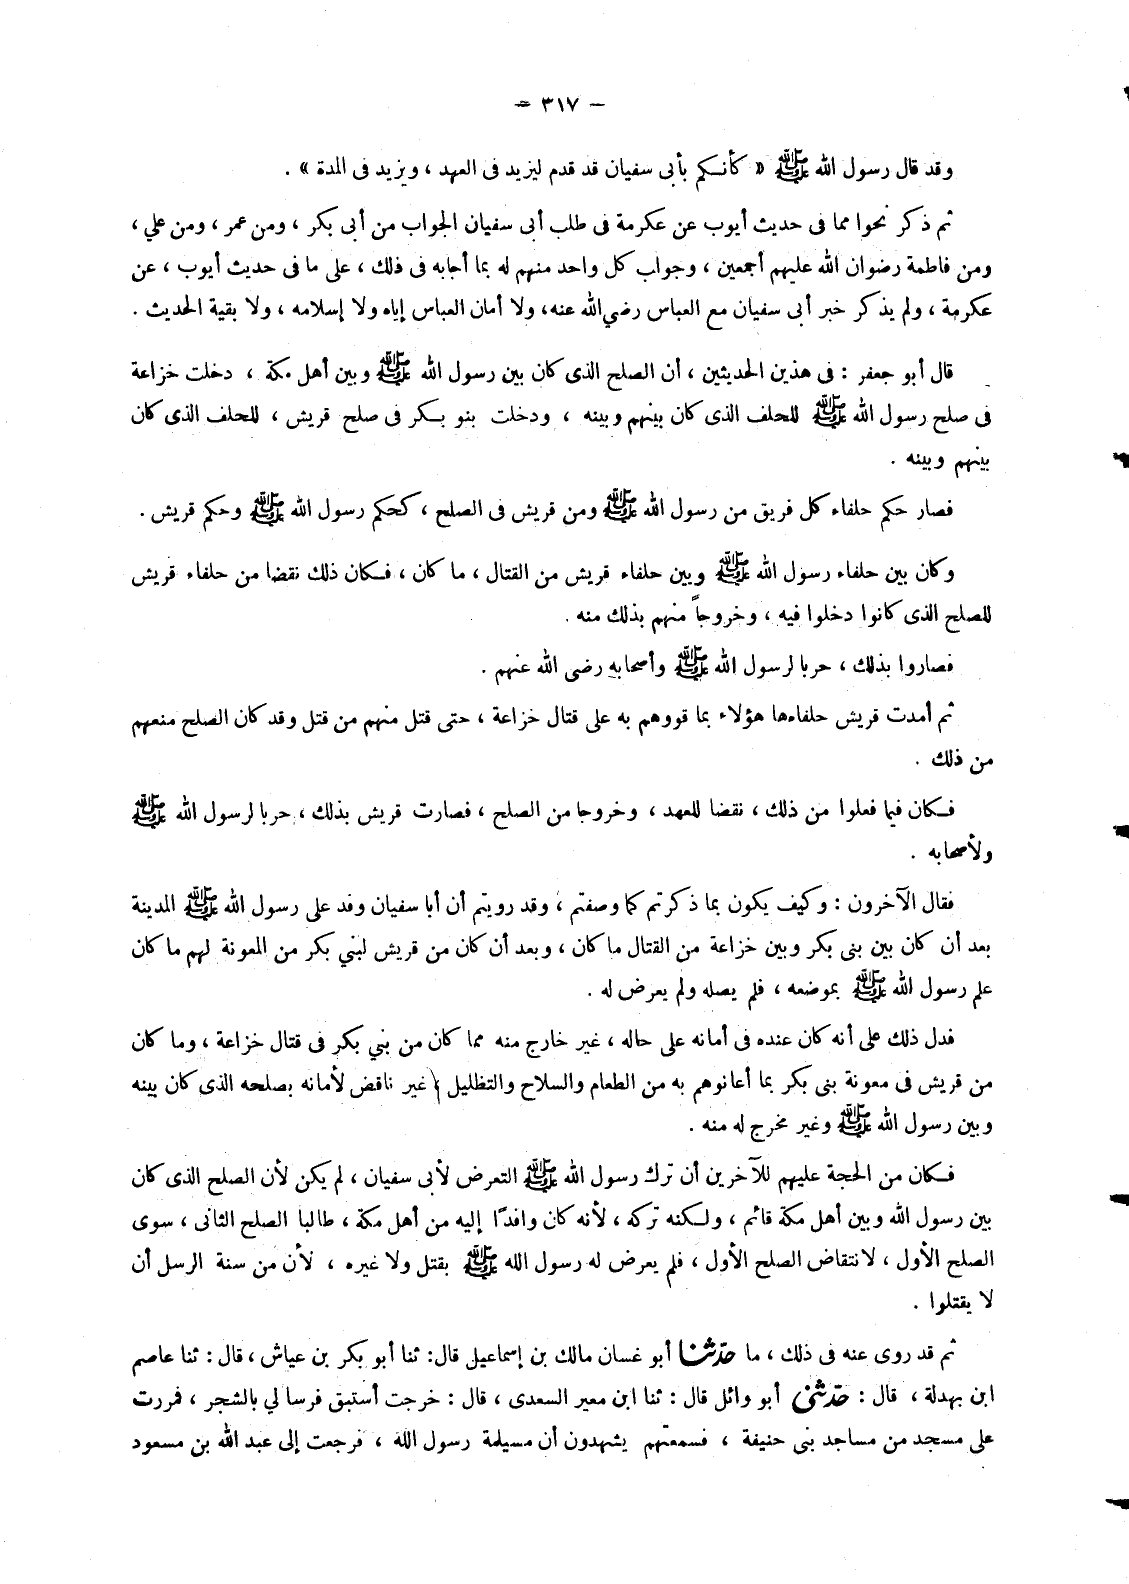 – ٣١٧ –
وقد قال رسول الله ﷺ « كأنكم بأبى سفيان قد قدم ليزيد فى العهد ، ويزيد فى المدة » .
ثم ذكر نحوا مما فى حديث أيوب عن عكرمة فى طلب أبى سفيان الجواب من أبى بكر ، ومن عمر ، ومن علي ،
ومن فاطمة رضوان الله عليهم أجمعين ، وجواب كل واحد منهم له بما أجابه فى ذلك ، على ما فى حديث أيوب ، عن
عكرمة ، ولم يذكر خبر أبى سفيان مع العباس رضي الله عنه، ولا أمان العباس إياه ولا إسلامه ، ولا بقية الحديث .
قال أبو جعفر : فى هذين الحديثين ، أن الصلح الذى كان بين رسول الله ﷺ وبين أهل مكة ، دخلت خزاعة
فى صلح رسول الله ﷺ للحلف الذى كان بينهم وبينه ، ودخلت بنو بكر فى صلح قريش ، للحلف الذى كان
بينهم وبينه .
فصار حكم حلفاء كل فريق من رسول الله ﷺ ومن قريش فى الصلح ، كحكم رسول الله ﷺ وحكم قريش .
وكان بين حلفاء رسول الله ﷺ وبين حلفاء قريش من القتال ، ما كان ، فكان ذلك نقضا من حلفاء قريش
للصلح الذى كانوا دخلوا فيه ، وخروجاً منهم بذلك منه .
فصاروا بذلك ، حربا لرسول الله ﷺ وأصحابه رضى الله عنهم .
ثم أمدت قريش حلفاءها هؤلاء بما قووهم به على قتال خزاعة ، حتى قتل منهم من قتل وقد كان الصلح منعهم
من ذلك .
فكان فيما فعلوا من ذلك ، نقضا للعهد ، وخروجا من الصلح ، فصارت قريش بذلك ، حربا لرسول الله ﷺ
ولأصحابه .
فقال الآخرون : وكيف يكون بما ذكرتم كما وصفتم ، وقد رويتم أن أبا سفيان وفد على رسول الله ﷺ المدينة
بعد أن كان بين بنى بكر وبين خزاعة من القتال ما كان ، وبعد أن كان من قريش لبني بكر من المعونة لهم ما كان
علم رسول الله ﷺ بموضعه ، فلم يصله ولم يعرض له .
فدل ذلك على أنه كان عنده فى أمانه على حاله ، غير خارج منه مما كان من بني بكر فى قتال خزاعة ، وما كان
من قريش فى معونة بنى بكر بما أعانوهم به من الطعام والسلاح والتظليل ) غير ناقض لأمانه بصلحه الذى كان بينه
وبين رسول الله ﷺ وغير مخرج له منه .
فكان من الحجة عليهم للآخرين أن ترك رسول الله ﷺ التعرض لأبى سفيان ، لم يكن لأن الصلح الذى كان
بين رسول الله وبين أهل مكة قائم ، ولكنه تركه ، لأنه كان وافدًا إليه من أهل مكة ، طالبا الصلح الثانى ، سوى
الصلح الأول ، لانتقاض الصلح الأول ، فلم يعرض له رسول الله ﷺ بقتل ولا غيره ، لأن من سنة الرسل أن
لا يقتلوا .
ثم قد روى عنه فى ذلك ، ما حدثنا أبو غسان مالك بن إسماعيل قال: ثنا أبو بكر بن عياش ، قال : ثنا عاصم
ابن بهدلة ، قال : حدثنى أبو وائل قال : ثنا ابن معير السعدى ، قال : خرجت أستبق فرسا لي بالشجر ، فمررت
على مسجد من مساجد بنى حنيفة ، فسمعتهم يشهدون أن مسيلمة رسول الله ، فرجعت إلى عبد الله بن مسعود